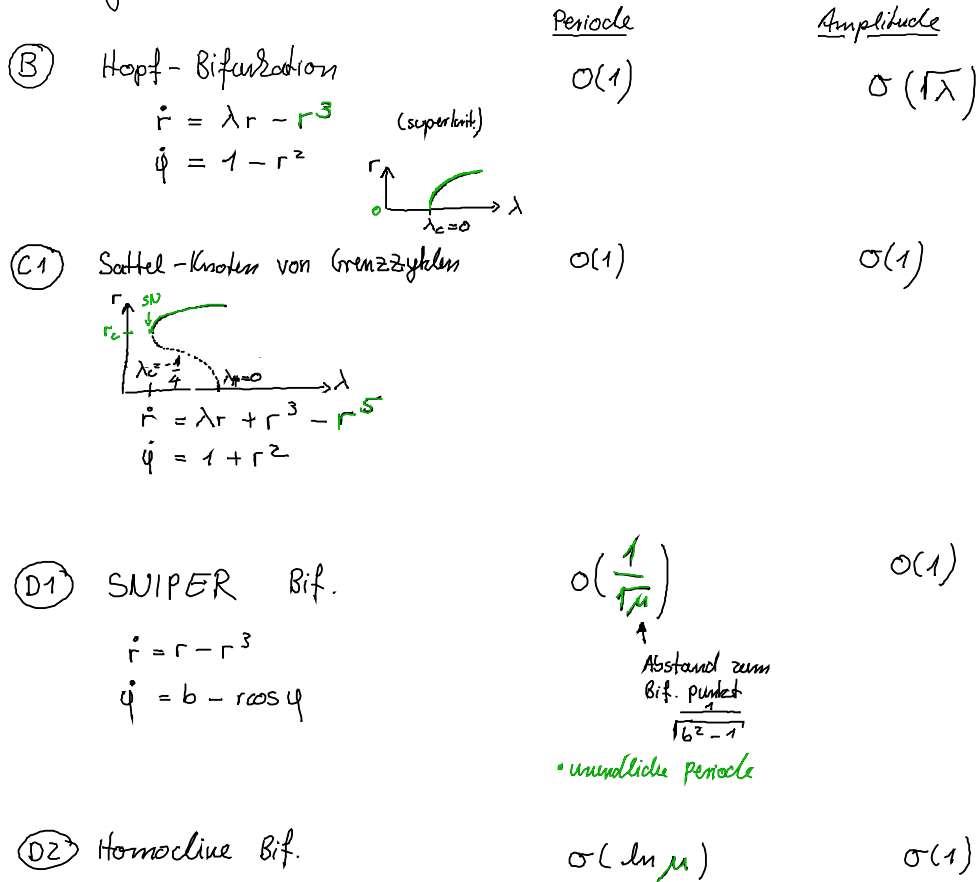 Periode Amplitude
(B) Hopf-Bifurkation O(1) O(√λ)
ṙ = λr - r³
φ̇ = 1 - r²
(superkrit.)
r
0 λc=0 λ
(C1) Sattel-Knoten von Grenzzyklen O(1) O(1)
r SN
rc
λc=-1/4 λH=0 λ
ṙ = λr + r³ - r⁵
φ̇ = 1 + r²
(D1) SNIPER Bif. O(1/√μ) O(1)
ṙ = r - r³
φ̇ = b - r cos φ
Abstand zum
Bif. punkt
1/√(b²-1)
• unendliche Periode
(D2) Homocline Bif. O(ln μ) O(1)